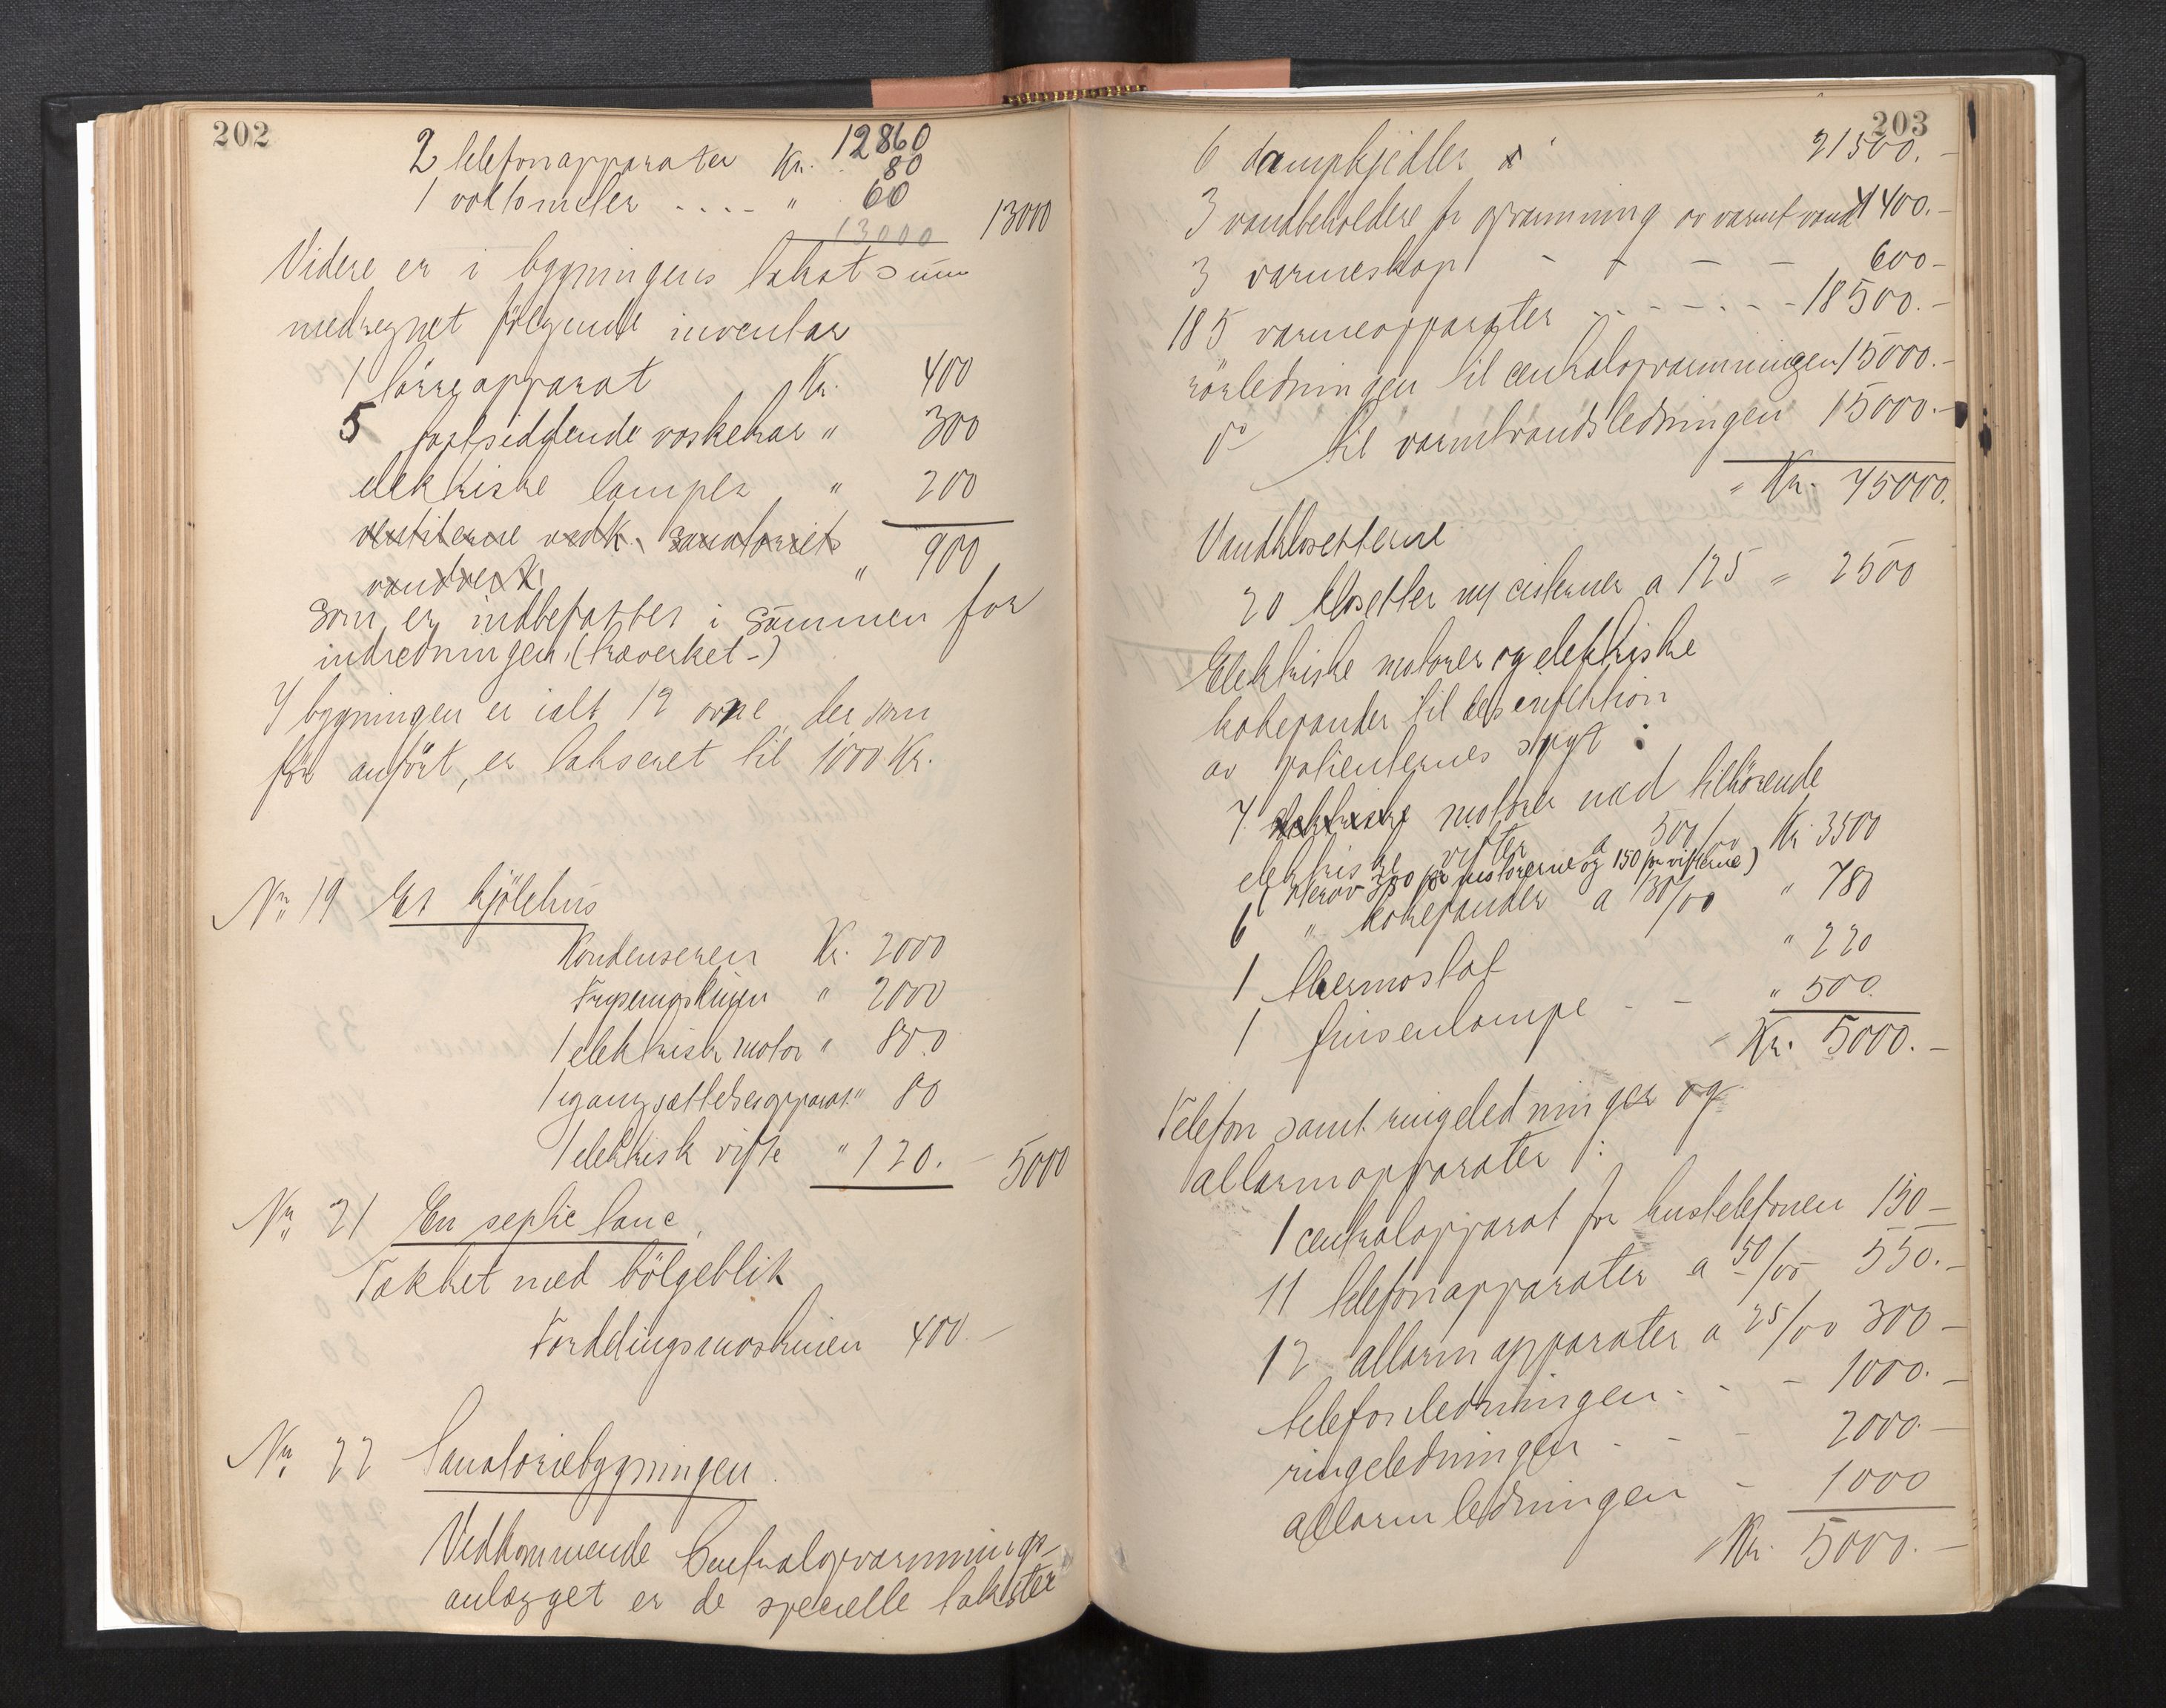 202
12860
2 telefonapparater Kr. 80
1 voltmeter .... " 60
13000 13000
Videre er i bygningens takst sum
medregnet følgende inventar
1 törreapparat Kr. 400
5 fastsiddende vaskekar " 300
elektriske lamper " 200
ventilerne vedk. sanatoriets
vandverk " 900
som er indbefattet i summen for
indredningen (træverket-)
I bygningen er ialt 12 ovne der som
för anfört, er takseret til 1000 Kr.
Nr. 19 Et kjölehus
Kondenseren Kr. 2000
Frysemaskinen " 2000
1 elektrisk motor " 800
1 igangsættelsesapparat " 80
1 elektrisk vifte " 120. - 5000
Nr. 21 En septic tanc.
Takket med bölgeblik
Fordelingsmaskinen 400.-
Nr. 22 Sanatoriebygningen.
Vedkommende Centralopvarmnings-
anlægget er de specielle takster
203
6 dampkjedler 21500.-
3 vandbeholdere for opvarmning av varmt vand 4400.-
3 varmeskap - - - - 600-
185 varmeapparater - - - - - 18500.-
rörledningen til centralopvarmningen 15000.-
do til varmtvandsledningen 15000.-
= Kr. 75000.
Vandklosetterne
20 klosetter m/ cisterner a 125 = 2500
Elektriske motorer og elektriske
kokepander til desinfektion
av patienternes spyt :
7 elektriske motorer med tilhörende
elektriske vifter a 500/00 Kr. 3500
(herav 350 for motorerne og 150 for vifterne)
6 " kokepander a 130/00 " 780
1 thermostat " 220
1 finsenlampe - - " 500
= Kr. 5000.-
Telefon samt ringeledninger og
allarmapparater :
1 centralapparat for hustelefonen 150-
11 telefonapparater a 50/00 550.-
12 allarmapparater a 25/00 300-
telefonledningen - - - 1000.-
ringeledningen - - - 2000.-
allarmledningen - 1000
= Kr. 5000.-